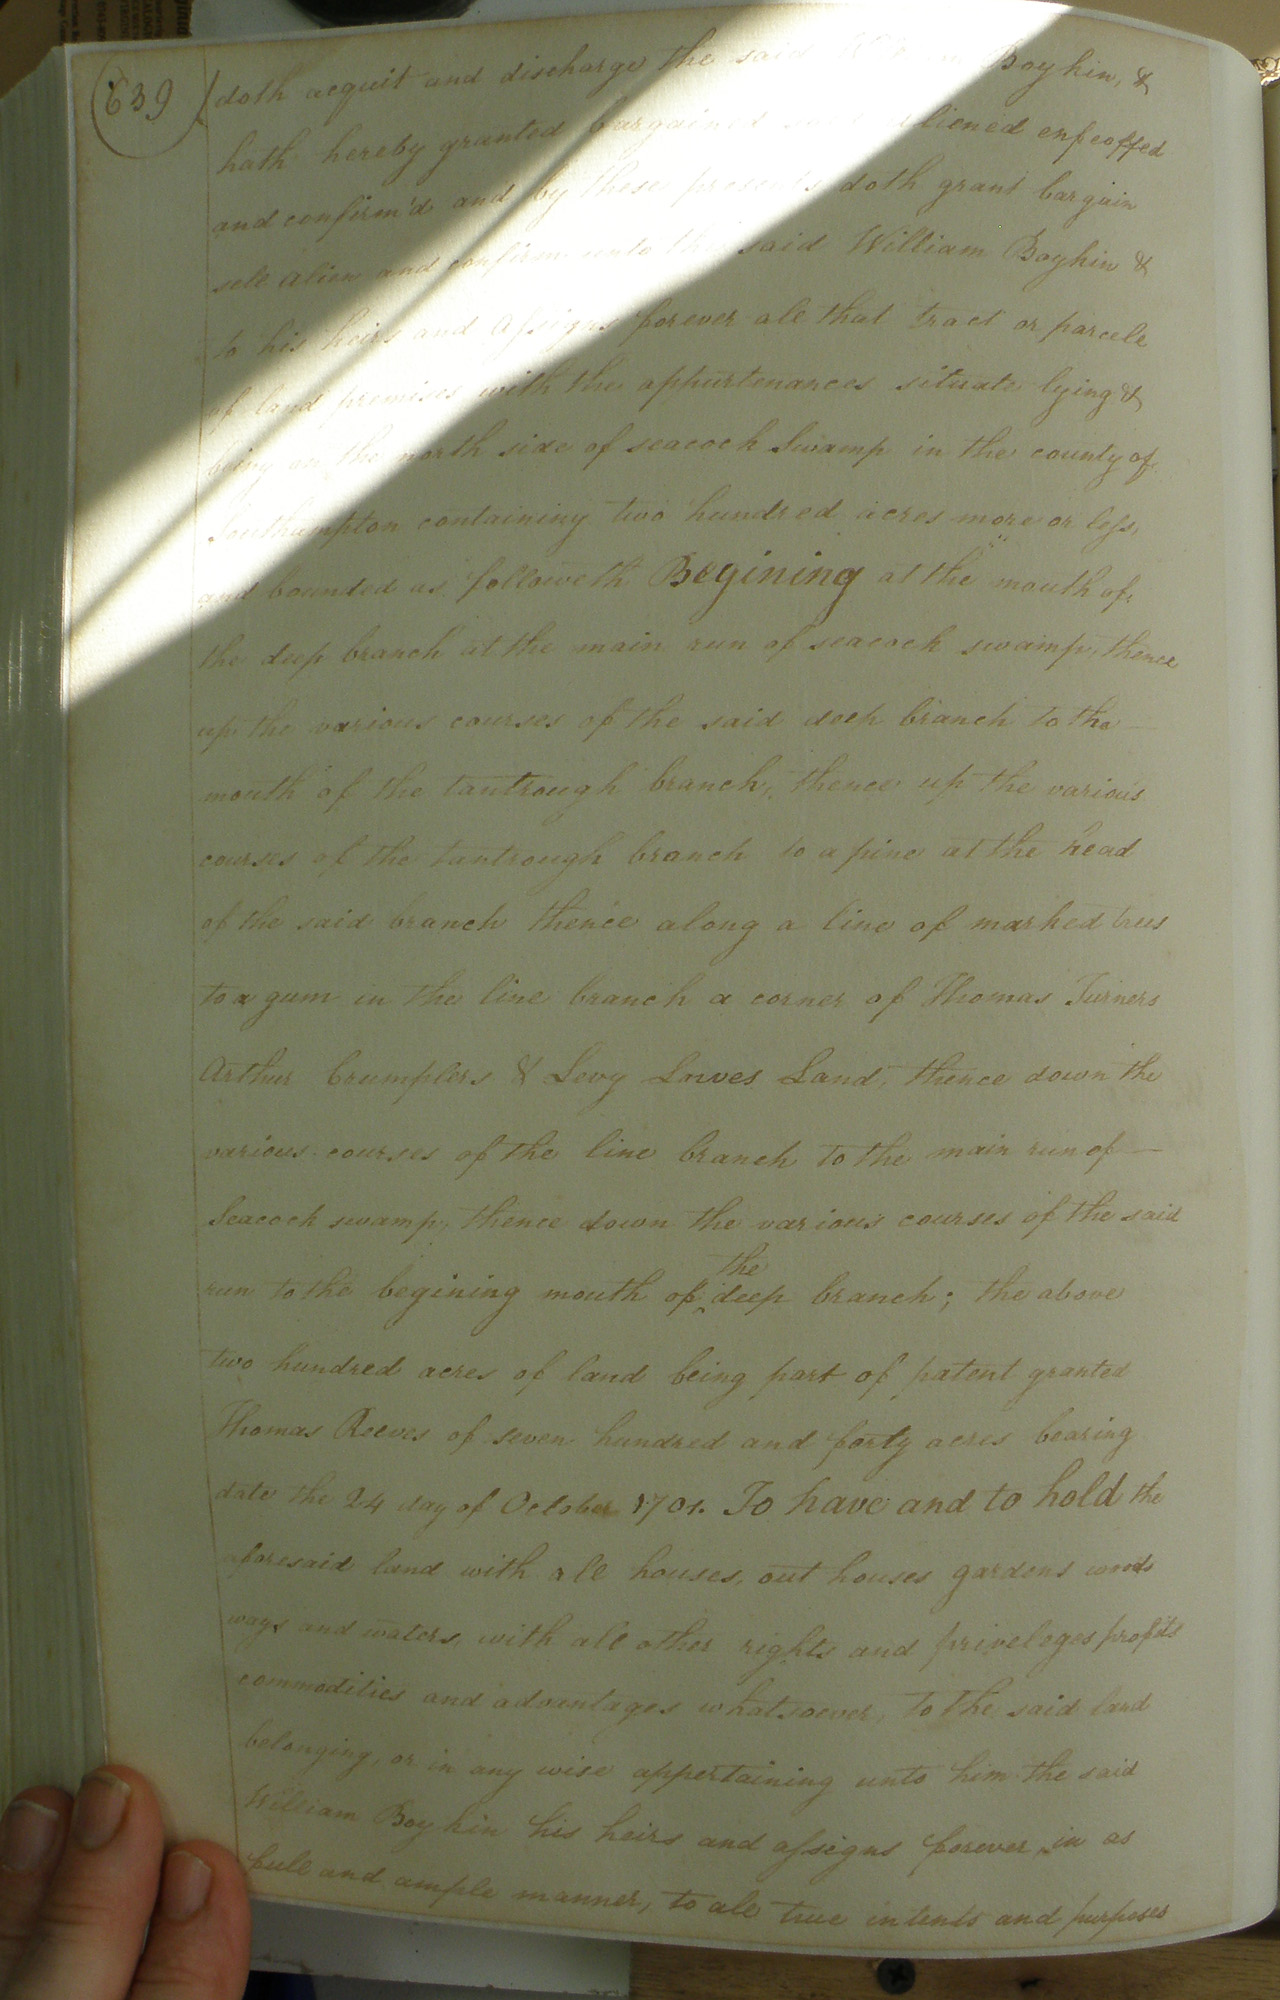 639
doth acquit and discharge the said William Boykin, &
hath hereby granted bargained sold aliened enfeoffed
and confirm'd and by these presents doth grant bargain
sell alien and confirm unto the said William Boykin &
to his heirs and assigns forever all that tract or parcele
of land premises with the appurtenances situate lying &
being on the north side of seacock Swamp in the county of
Southampton containing two hundred acres more or less,
and bounded as followeth Begining at the mouth of
the deep branch at the main run of seacock swamp, thence
up the various courses of the said deep branch to the
mouth of the tantrough branch, thence up the various
courses of the tantrough branch to a pine at the head
of the said branch thence along a line of marked trees
to a gum in the line branch a corner of Thomas Turners
Arthur Crumplers & Levy Lowes Land, thence down the
various courses of the line branch to the main run of
Seacock swamp, thence down the various courses of the said
run to the begining mouth of the deep branch; the above
two hundred acres of land being part of patent granted
Thomas Reeves of seven hundred and forty acres bearing
date the 24 day of October 1701. To have and to hold the
aforesaid land with all houses, out houses gardens woods
ways and waters, with all other rights and priveleges profits
commodities and advantages whatsoever, to the said land
belonging, or in any wise appertaining unto him the said
William Boykin his heirs and assigns forever, in as
full and ample manner, to all true intents and purposes